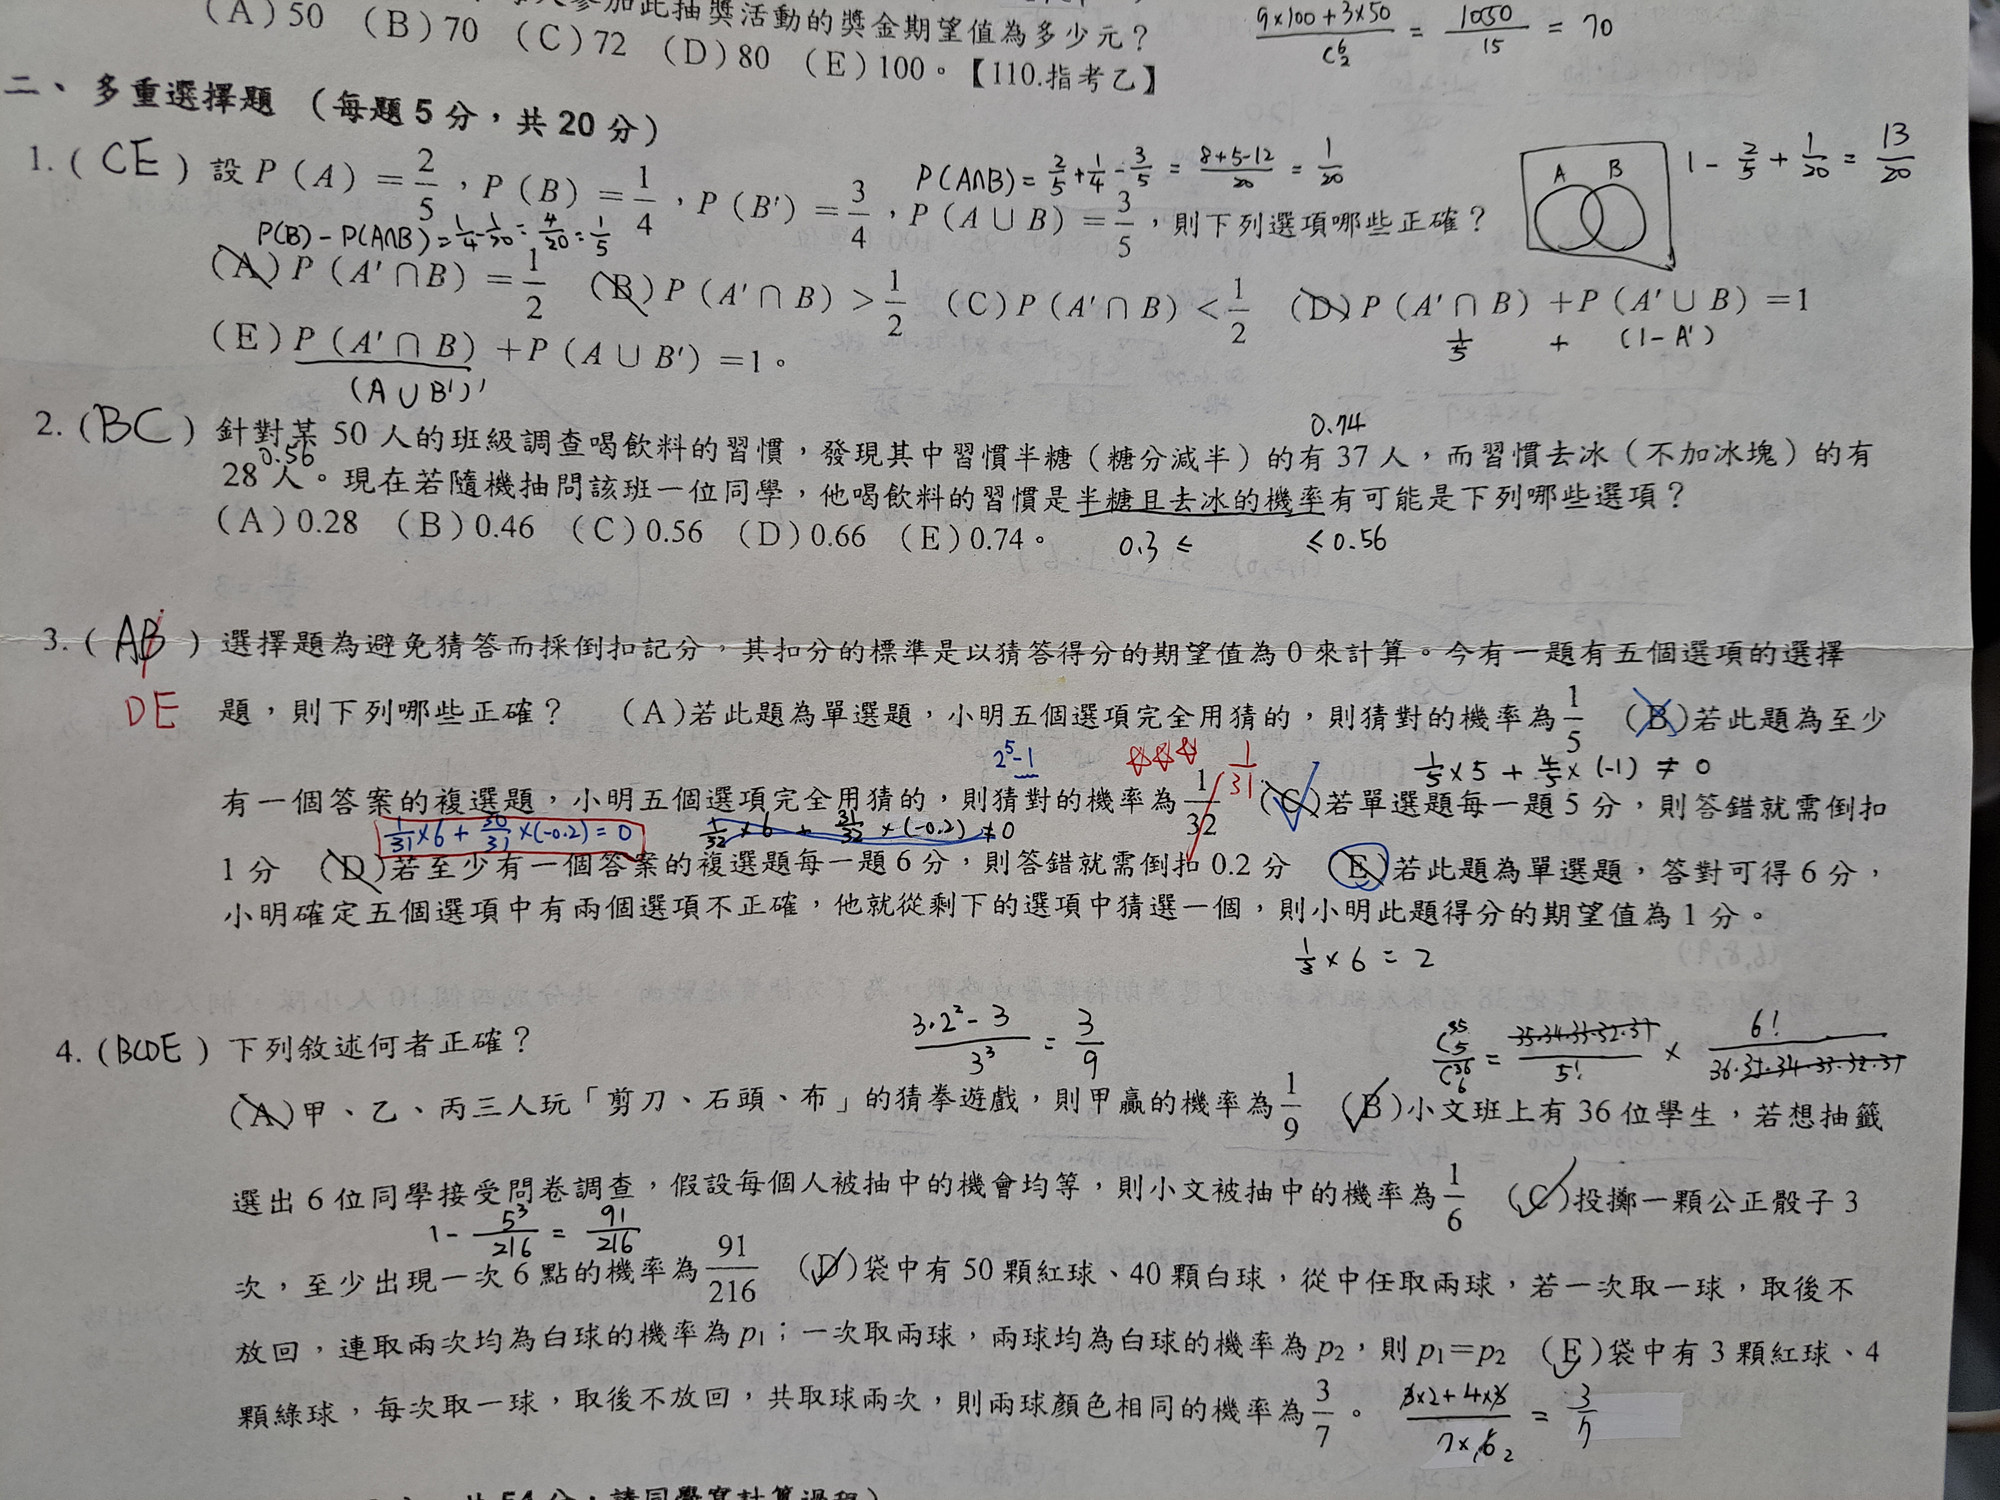 參加此抽獎活動的獎金期望值為多少元？
(A)50 (B)70 (C)72 (D)80 (E)100。【110.指考乙】
9×100+3×50 / C⁶₂ = 1050/15 = 70
二、多重選擇題（每題5分，共20分）
1.( CE ) 設P(A)=2/5，P(B)=1/4，P(B′)=3/4，P(A∪B)=3/5，則下列選項哪些正確？
P(A∩B)=2/5+1/4-3/5=8+5-12/20=1/20
A B
1-2/5+1/20=13/20
P(B)-P(A∩B)=1/4-1/20=4/20=1/5
(A)P(A′∩B)=1/2 (B)P(A′∩B)>1/2 (C)P(A′∩B)<1/2 (D)P(A′∩B)+P(A′∪B)=1
1/5 + (1-A′)
(E)P(A′∩B)+P(A∪B′)=1。
(A∪B′)′
2.( BC ) 針對某50人的班級調查喝飲料的習慣，發現其中習慣半糖（糖分減半）的有37人，而習慣去冰（不加冰塊）的有
0.74
0.56
28人。現在若隨機抽問該班一位同學，他喝飲料的習慣是半糖且去冰的機率有可能是下列哪些選項？
(A)0.28 (B)0.46 (C)0.56 (D)0.66 (E)0.74。
0.3≤ ≤0.56
3.( AB ) 選擇題為避免猜答而採倒扣記分，其扣分的標準是以猜答得分的期望值為0來計算。今有一題有五個選項的選擇
DE
題，則下列哪些正確？ (A)若此題為單選題，小明五個選項完全用猜的，則猜對的機率為1/5 (B)若此題為至少
2⁵-1
1/31
1/5×5+4/5×(-1)≠0
有一個答案的複選題，小明五個選項完全用猜的，則猜對的機率為1/32 (C)若單選題每一題5分，則答錯就需倒扣
1/31×6+30/31×(-0.2)=0
1/32×6+31/32×(-0.2)≠0
1分 (D)若至少有一個答案的複選題每一題6分，則答錯就需倒扣0.2分 (E)若此題為單選題，答對可得6分，
小明確定五個選項中有兩個選項不正確，他就從剩下的選項中猜選一個，則小明此題得分的期望值為1分。
1/3×6=2
4.( BCDE ) 下列敘述何者正確？
3·2²-3 / 3³ = 3/9
C³⁵₅ / C³⁶₆ = 35·34·33·32·31 / 5! × 6! / 36·35·34·33·32·31
(A)甲、乙、丙三人玩「剪刀、石頭、布」的猜拳遊戲，則甲贏的機率為1/9 (B)小文班上有36位學生，若想抽籤
選出6位同學接受問卷調查，假設每個人被抽中的機會均等，則小文被抽中的機率為1/6 (C)投擲一顆公正骰子3
1-5³/216=91/216
次，至少出現一次6點的機率為91/216 (D)袋中有50顆紅球、40顆白球，從中任取兩球，若一次取一球，取後不
放回，連取兩次均為白球的機率為p₁；一次取兩球，兩球均為白球的機率為p₂，則p₁=p₂ (E)袋中有3顆紅球、4
顆綠球，每次取一球，取後不放回，共取球兩次，則兩球顏色相同的機率為3/7。
3×2+4×3 / 7×6 2 = 3/7
共54分，請同學寫計算過程）